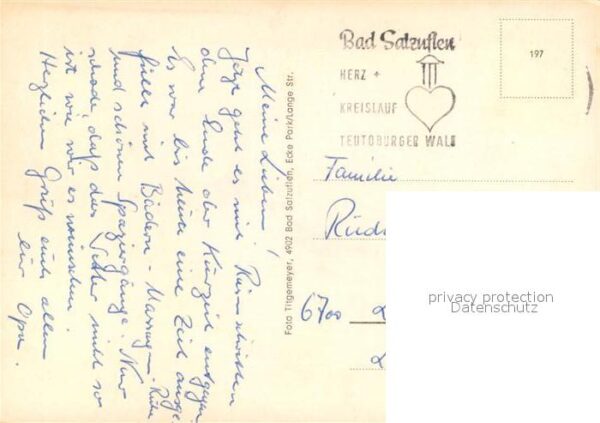 Meine Lieben!
Jetzt geht es mit Riesenschritten
dem Ende der Kurzeit entgegen.
Es war bis heute eine Zeit ausge-
füllt mit Bädern - Massagen - Ruhe
und schönen Spaziergänge. Nur
schade, daß das Wetter nicht so
ist wie wir es wünschen.
Herzlichen Gruß euch allen
eur Opa.
Foto Titgemeyer, 4902 Bad Salzuflen, Ecke Park/Lange Str.
Bad Salzuflen
HERZ +
KREISLAUF
TEUTOBURGER WALD
197
Familie
Rüd
6700 L
L
privacy protection
Datenschutz